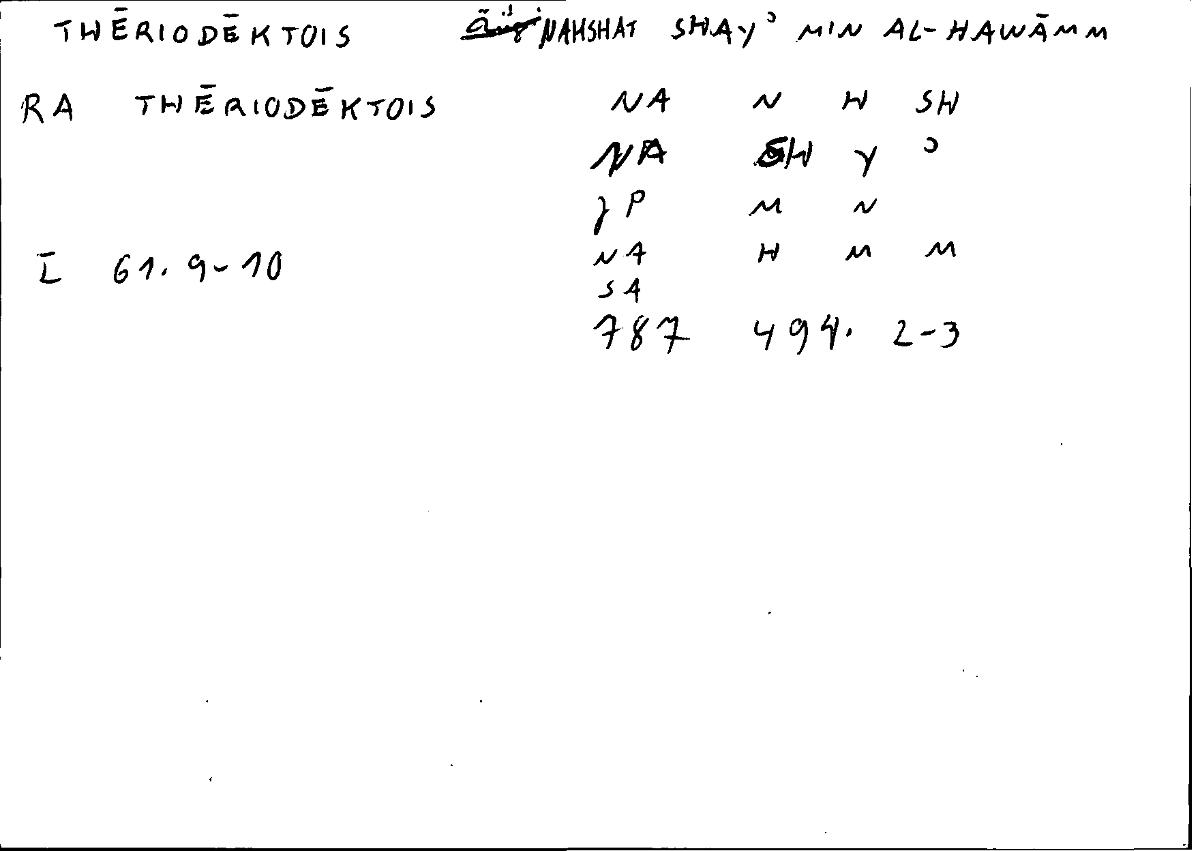 THĒRIODĒKTOIS NAHSHAT SHAYʾ MIN AL-HAWĀMM
RA THĒRIODĒKTOIS NA N H SH
NA SH Y ʾ
P M N
NA H M M
I 61.9-10
SA
787 494. 2-3